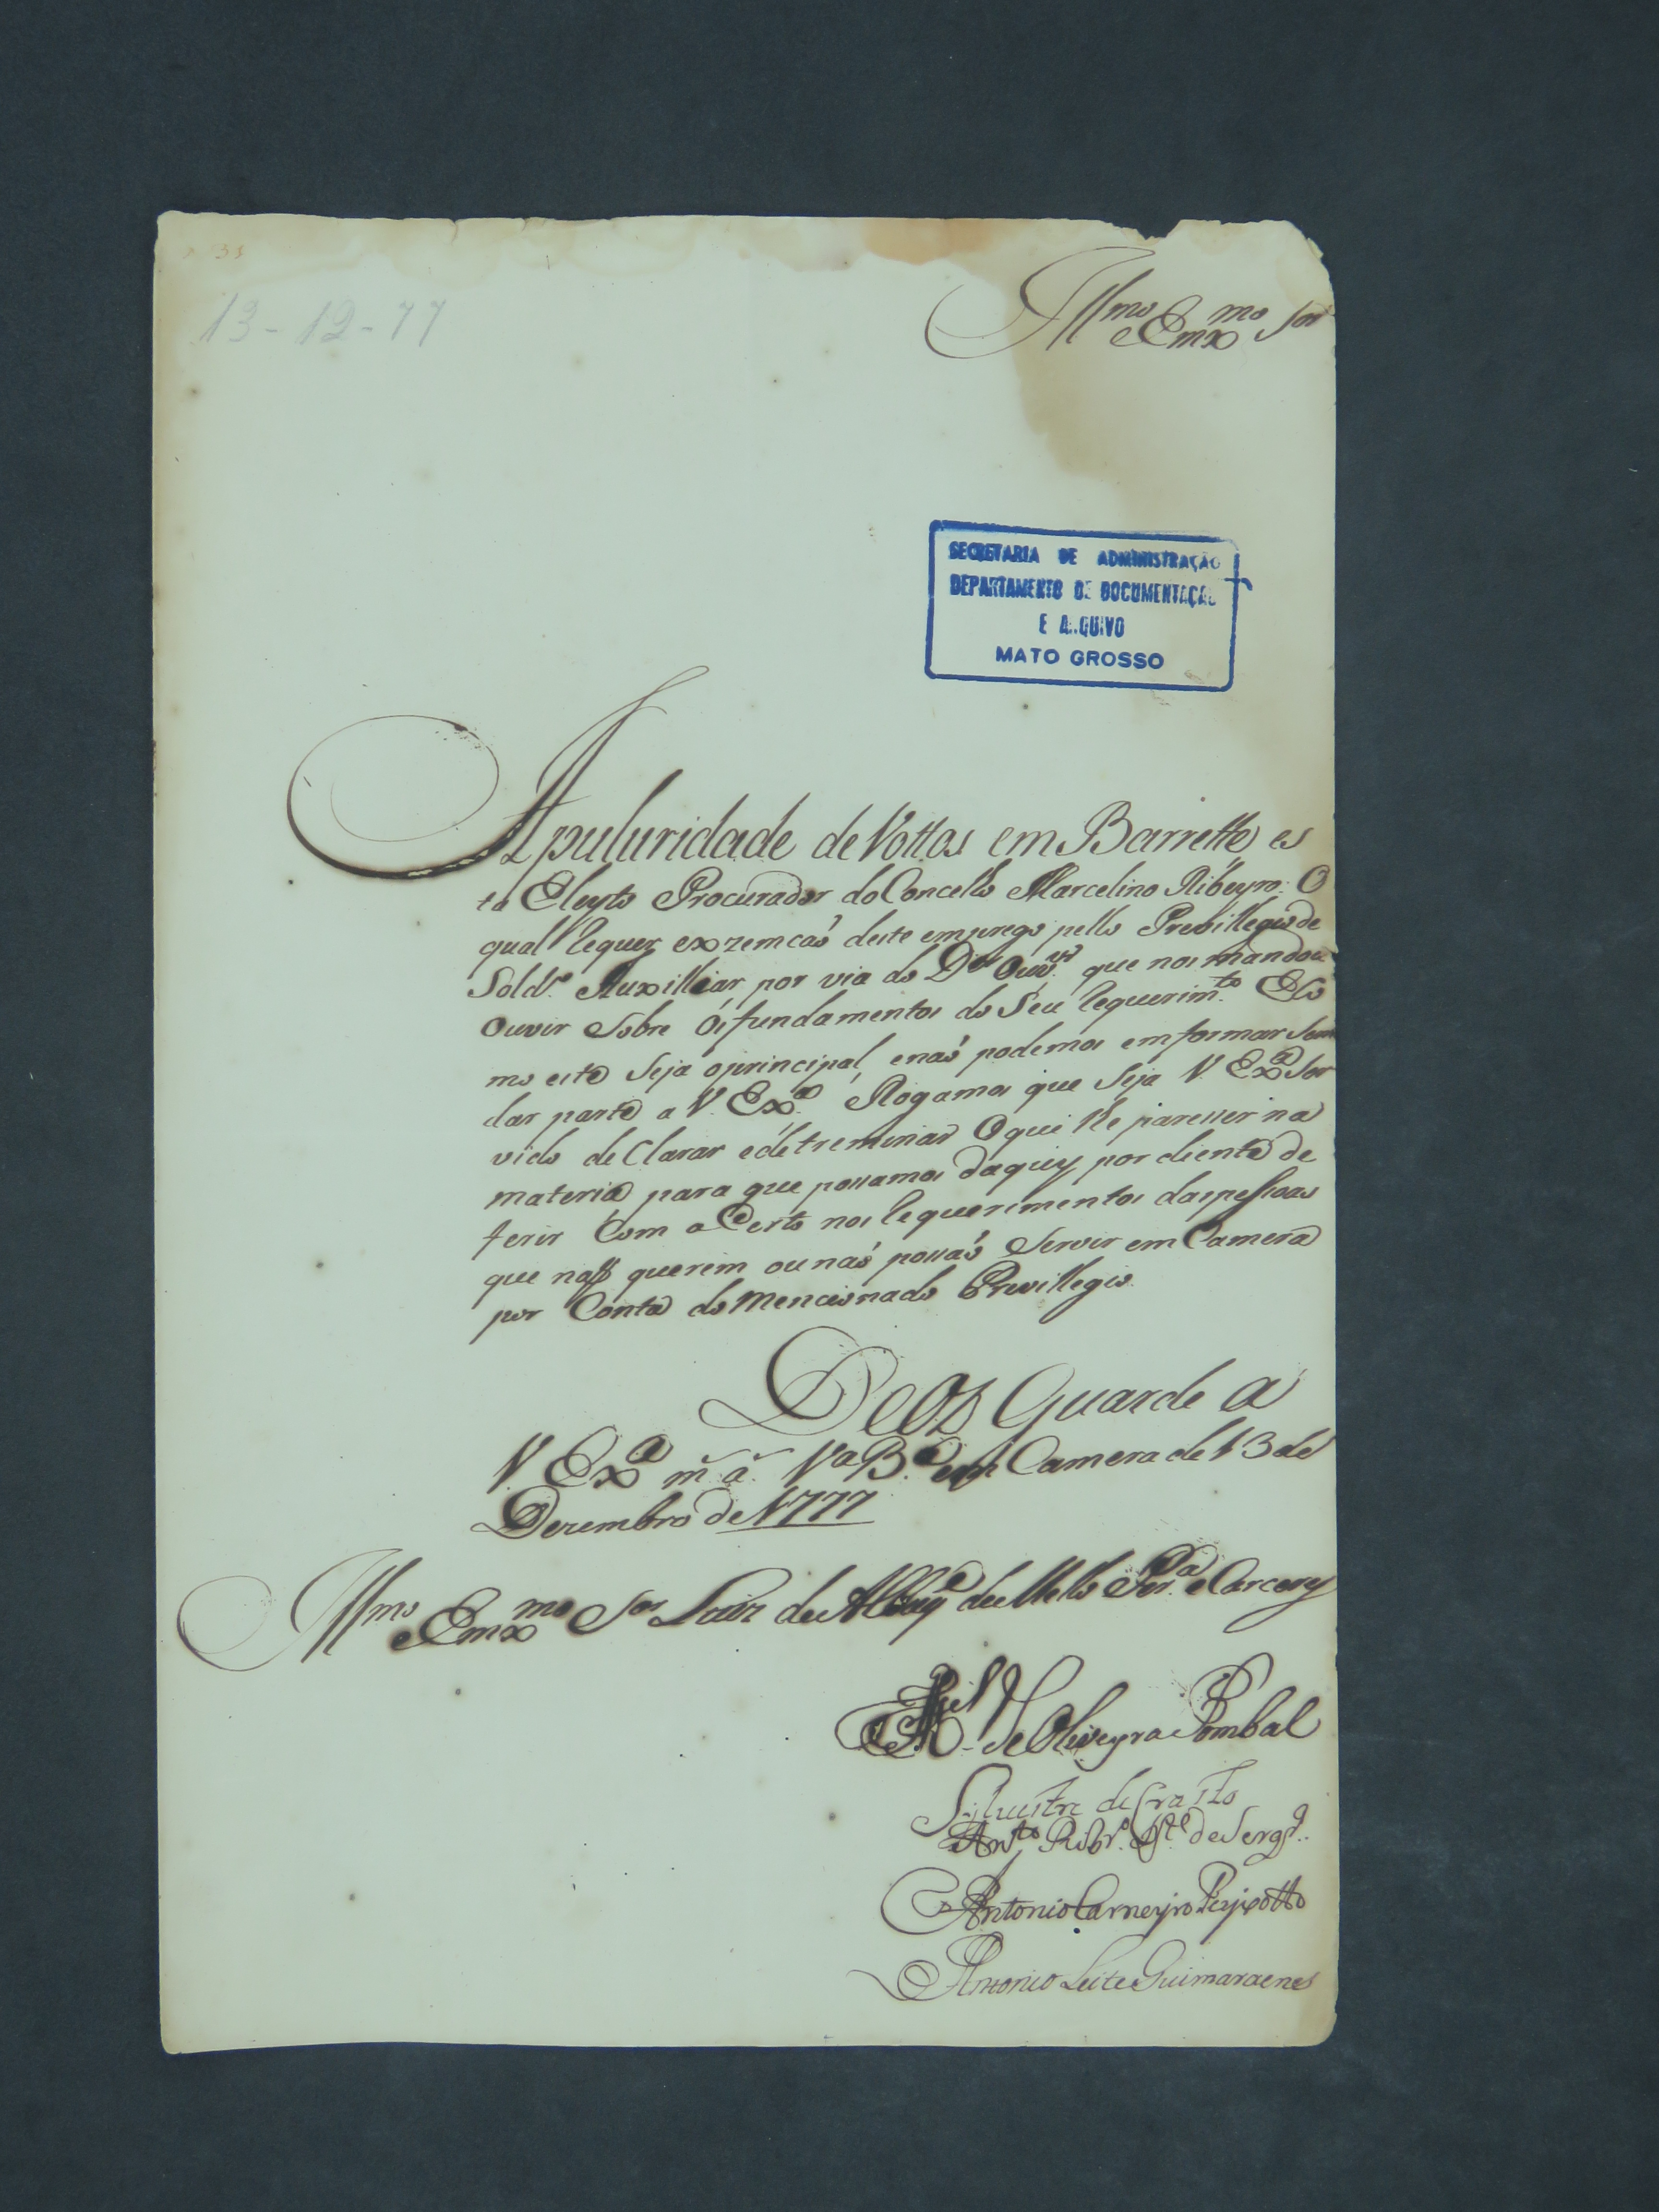 13-12-77
Illmo e Exmo Sor
SECRETARIA DE ADMINISTRAÇÃO
DEPARTAMENTO DE DOCUMENTAÇÃO
E ARQUIVO
MATO GROSSO
Apuluridade de Vottos em Barrette es
ta Eleyto Procurador do Concelho Marcelino Ribeyro: O
qual Requer exzemcaõ deste emprego pello Previllegio de
Soldo. Auxilliar por via do Dor Ouvor. que nos mandou
Ouvir Sobre os fundamentos do Seu Requerimto. E Co
mo este Seja oprincipal, enaõ podemos emformar Sem
dar parte a V. Exa. Rogamos que Seja V. Exa Ser
vido de Clarar edetreminar O que lhe paresser na
materia para que possamos daquy por diente de
ferir Com aCerto nos Requerimentos daspessoas
que naõ querem ounaõ possaõ Servir em Camera
por Conta do Mencionado Previllegio.
Deos Guarde a
V Exa m. a. Va Ba em Camera de 13 de
Dezembro de 1777
Illmo e Exmo Sor Luiz de Albuqe de Mello Pera. e Carcerez
de Oliveyra Pombal
Sylvestre de
Anto Ribro. de
Antonio Carneyro Peyxotto
Antonio Leite Guimaraenes